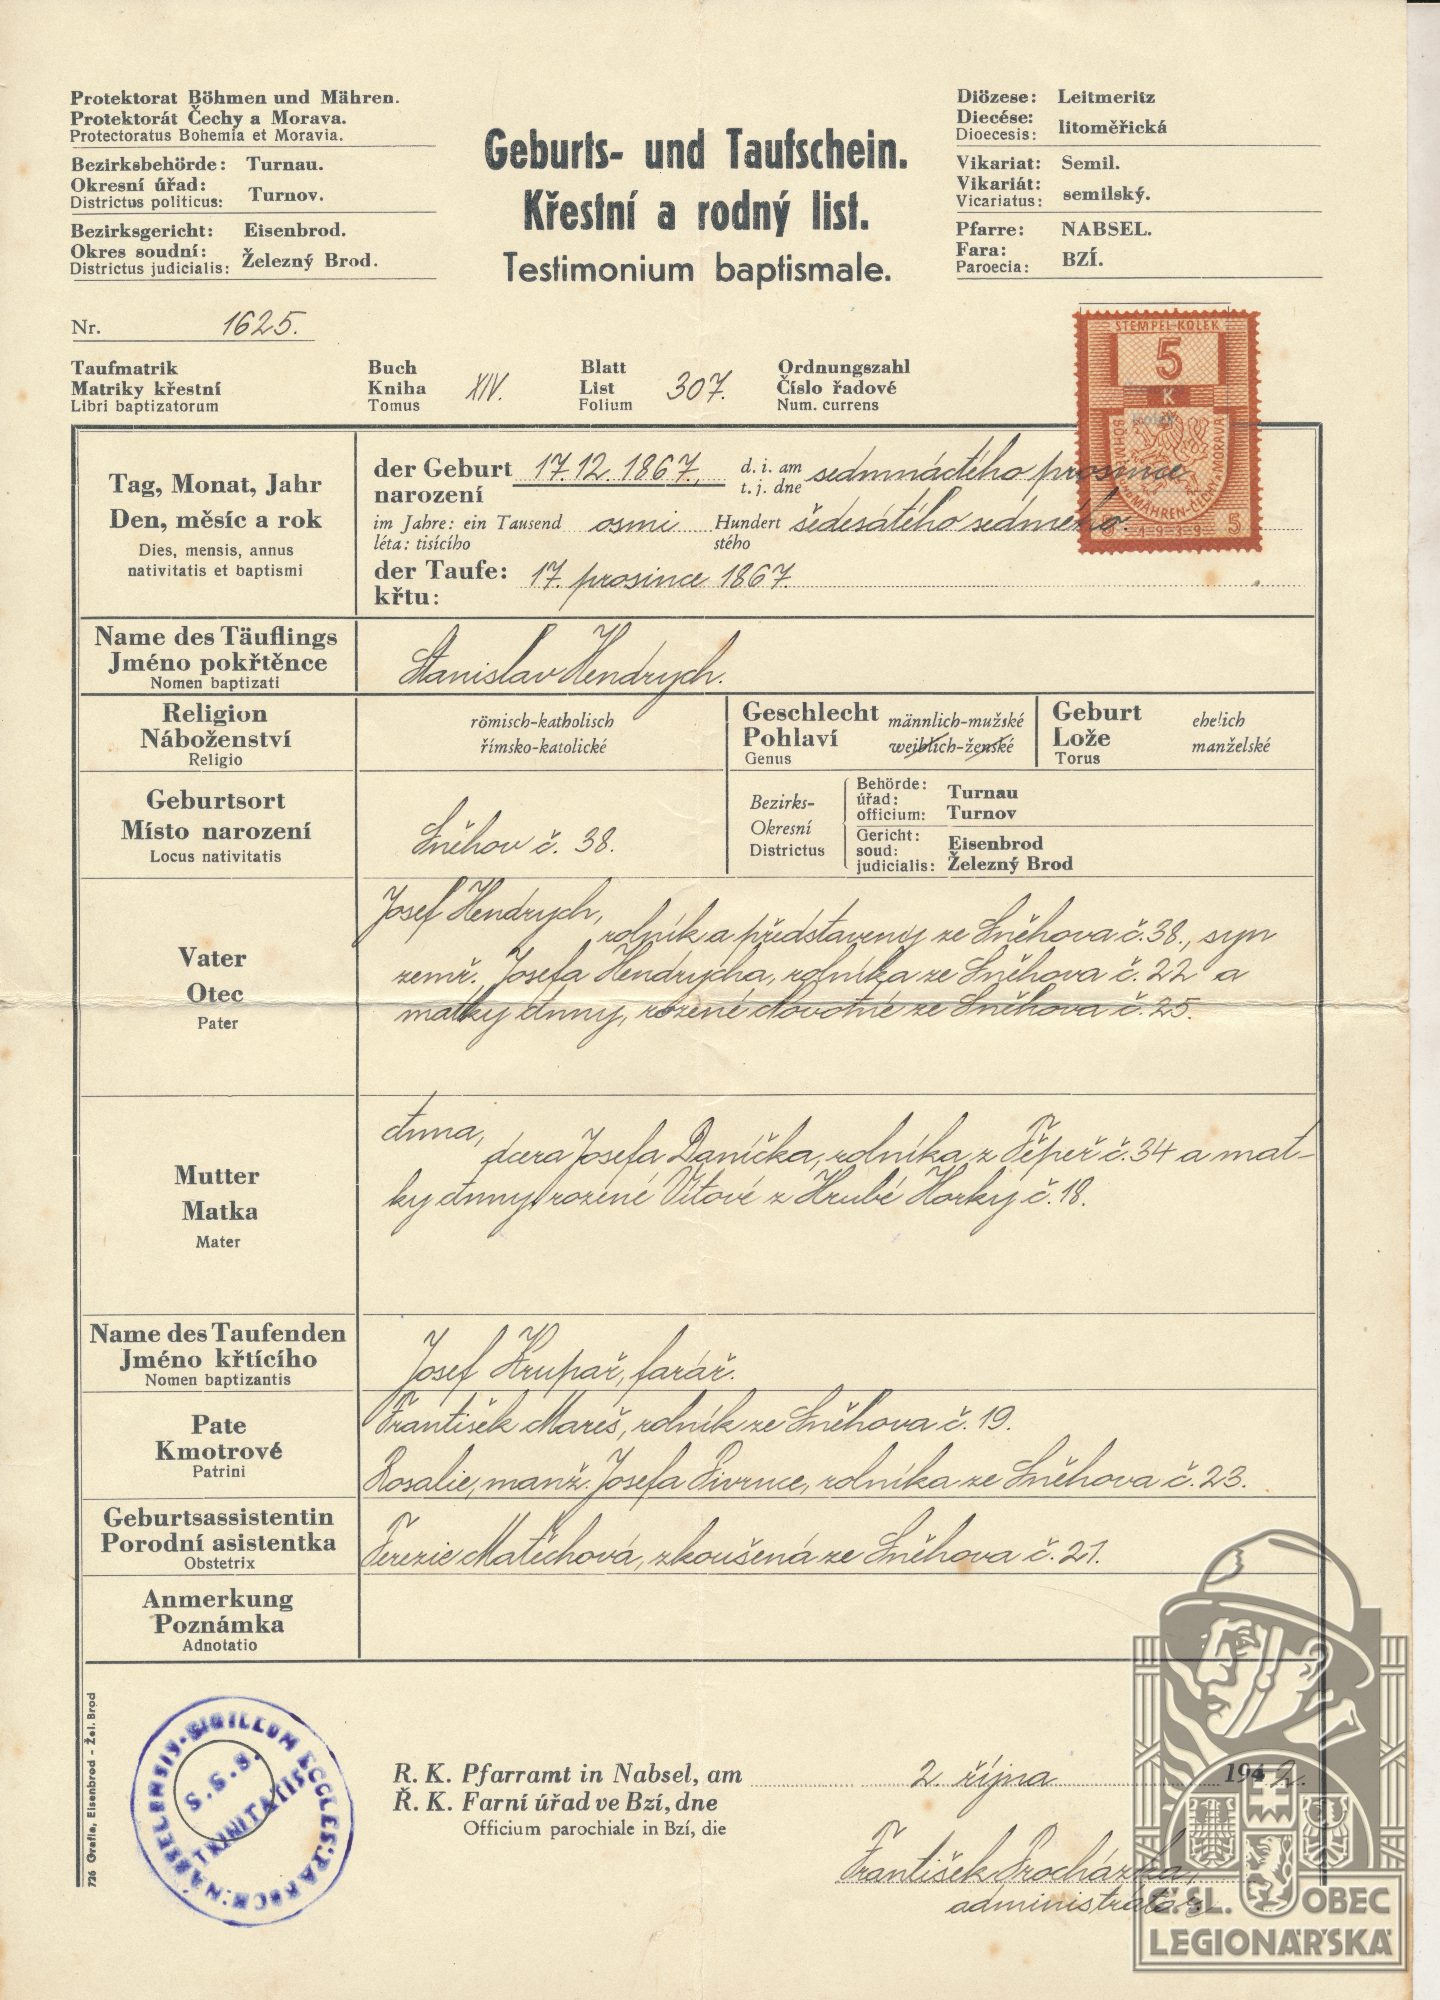 Protektorat Böhmen und Mähren.
Protektorát Čechy a Morava.
Protectoratus Bohemia et Moravia.
Bezirksbehörde: Turnau.
Okresní úřad:
Districtus politicus: Turnov.
Bezirksgericht: Eisenbrod.
Okres soudní:
Districtus judicialis: Železný Brod.
Geburts- und Taufschein.
Křestní a rodný list.
Testimonium baptismale.
Diözese: Leitmeritz
Diecése:
Dioecesis: litoměřická
Vikariat: Semil.
Vikariát:
Vicariatus: semilský.
Pfarre: NABSEL.
Fara:
Paroecia: BZÍ.
Nr. 1625.
STEMPEL-KOLEK
5
K
BÖHMEN UND MÄHREN-ČECHY A MORAVA
5 1939 5
Taufmatrik
Matriky křestní
Libri baptizatorum
Buch
Kniha XIV.
Tomus
Blatt
List 307.
Folium
Ordnungszahl
Číslo řadové
Num. currens
Tag, Monat, Jahr
Den, měsíc a rok
Dies, mensis, annus
nativitatis et baptismi
der Geburt 17.12.1867, d. i. am sedmnáctého prosince
narození t. j. dne
im Jahre: ein Tausend osmi Hundert šedesátého sedmého.
léta: tisícího stého
der Taufe: 17. prosince 1867.
křtu:
Name des Täuflings
Jméno pokřtěnce
Nomen baptizati
Stanislav Hendrych.
Religion
Náboženství
Religio
römisch-katholisch
římsko-katolické
Geschlecht männlich-mužské
Pohlaví weiblich-ženské
Genus
Geburt ehelich
Lože manželské
Torus
Geburtsort
Místo narození
Locus nativitatis
Sněhov č. 38.
Bezirks-
Okresní
Districtus
Behörde: Turnau
úřad:
officium: Turnov
Gericht: Eisenbrod
soud:
judicialis: Železný Brod
Vater
Otec
Pater
Josef Hendrych,
rolník a představený ze Sněhova č. 38., syn
zemř. Josefa Hendrycha, rolníka ze Sněhova č. 22 a
matky Anny, rozené Novotné ze Sněhova č. 25.
Mutter
Matka
Mater
Anna,
dcera Josefa Daníčka, rolníka z Těpeř č. 34 a mat-
ky Anny, rozené Vítové z Hrubé Horky č. 18.
Name des Taufenden
Jméno křtícího
Nomen baptizantis
Josef Krupař, farář.
Pate
Kmotrové
Patrini
František Mareš, rolník ze Sněhova č. 19.
Rosalie, manž. Josefa Pivrnce, rolníka ze Sněhova č. 23.
Geburtsassistentin
Porodní asistentka
Obstetrix
Terezie Matěchová, zkoušená ze Sněhova č. 21.
Anmerkung
Poznámka
Adnotatio
726 Grafia, Eisenbrod - Žel. Brod
S. S. S.
TRINITATIS
R. K. Pfarramt in Nabsel, am 2. října 1942.
Ř. K. Farní úřad ve Bzí, dne
Officium parochiale in Bzí, die
František Procházka,
administrátor
Č.SL. OBEC
LEGIONÁŘSKÁ